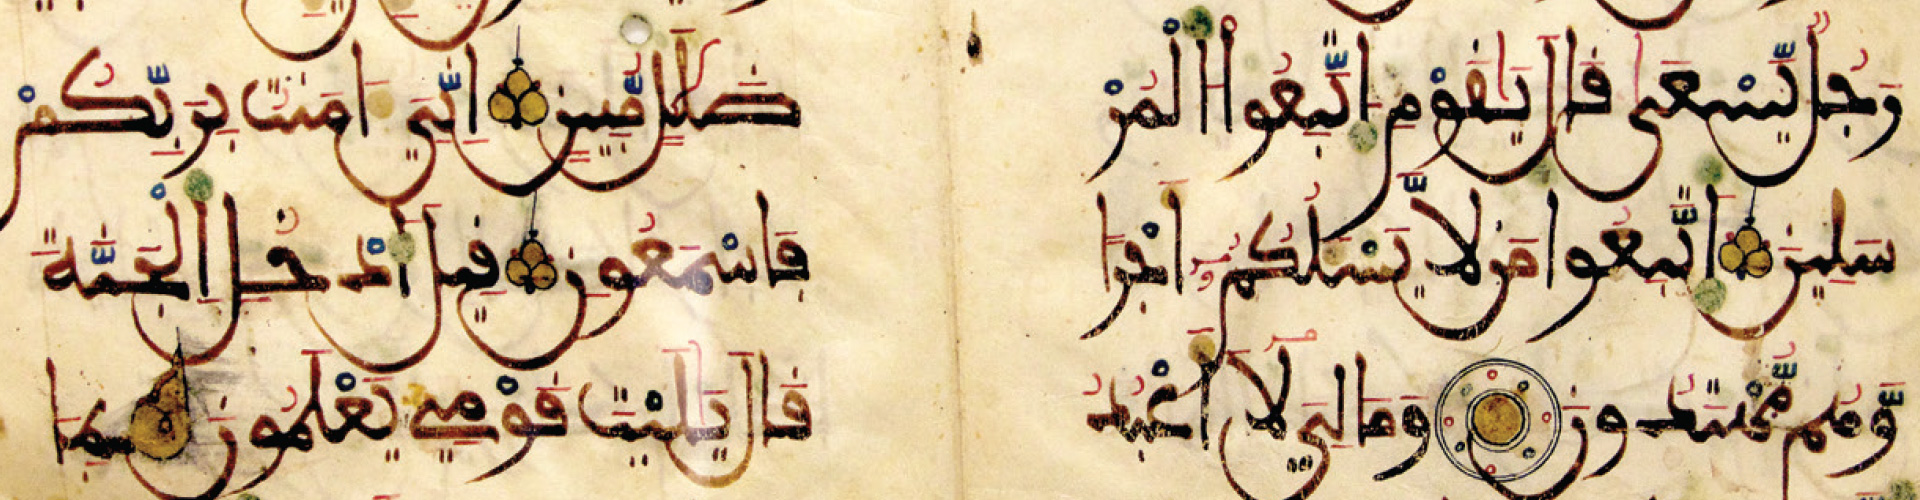 رَجُلٌ يَّسْعَىٰ قَالَ يَٰقَوْمِ اِتَّبِعُوا اُلْمُرْ
سَلِينَ اَتَّبِعُوا مَن لَّا يَسْـَٔلُكُمُۥٓ أَجْرًا
وَهُم مُّهْتَدُونَ وَمَا لِيَ لَآ أَعْبُدُ
ضَلَٰلٍ مُّبِينٍ اِنِّيَ ءَامَنتُ بِرَبِّكُمْ
فَاسْمَعُونِ قِيلَ اَدْخُلِ اِلْجَنَّةَ
قَالَ يَٰلَيْتَ قَوْمِي يَعْلَمُونَ بِمَا